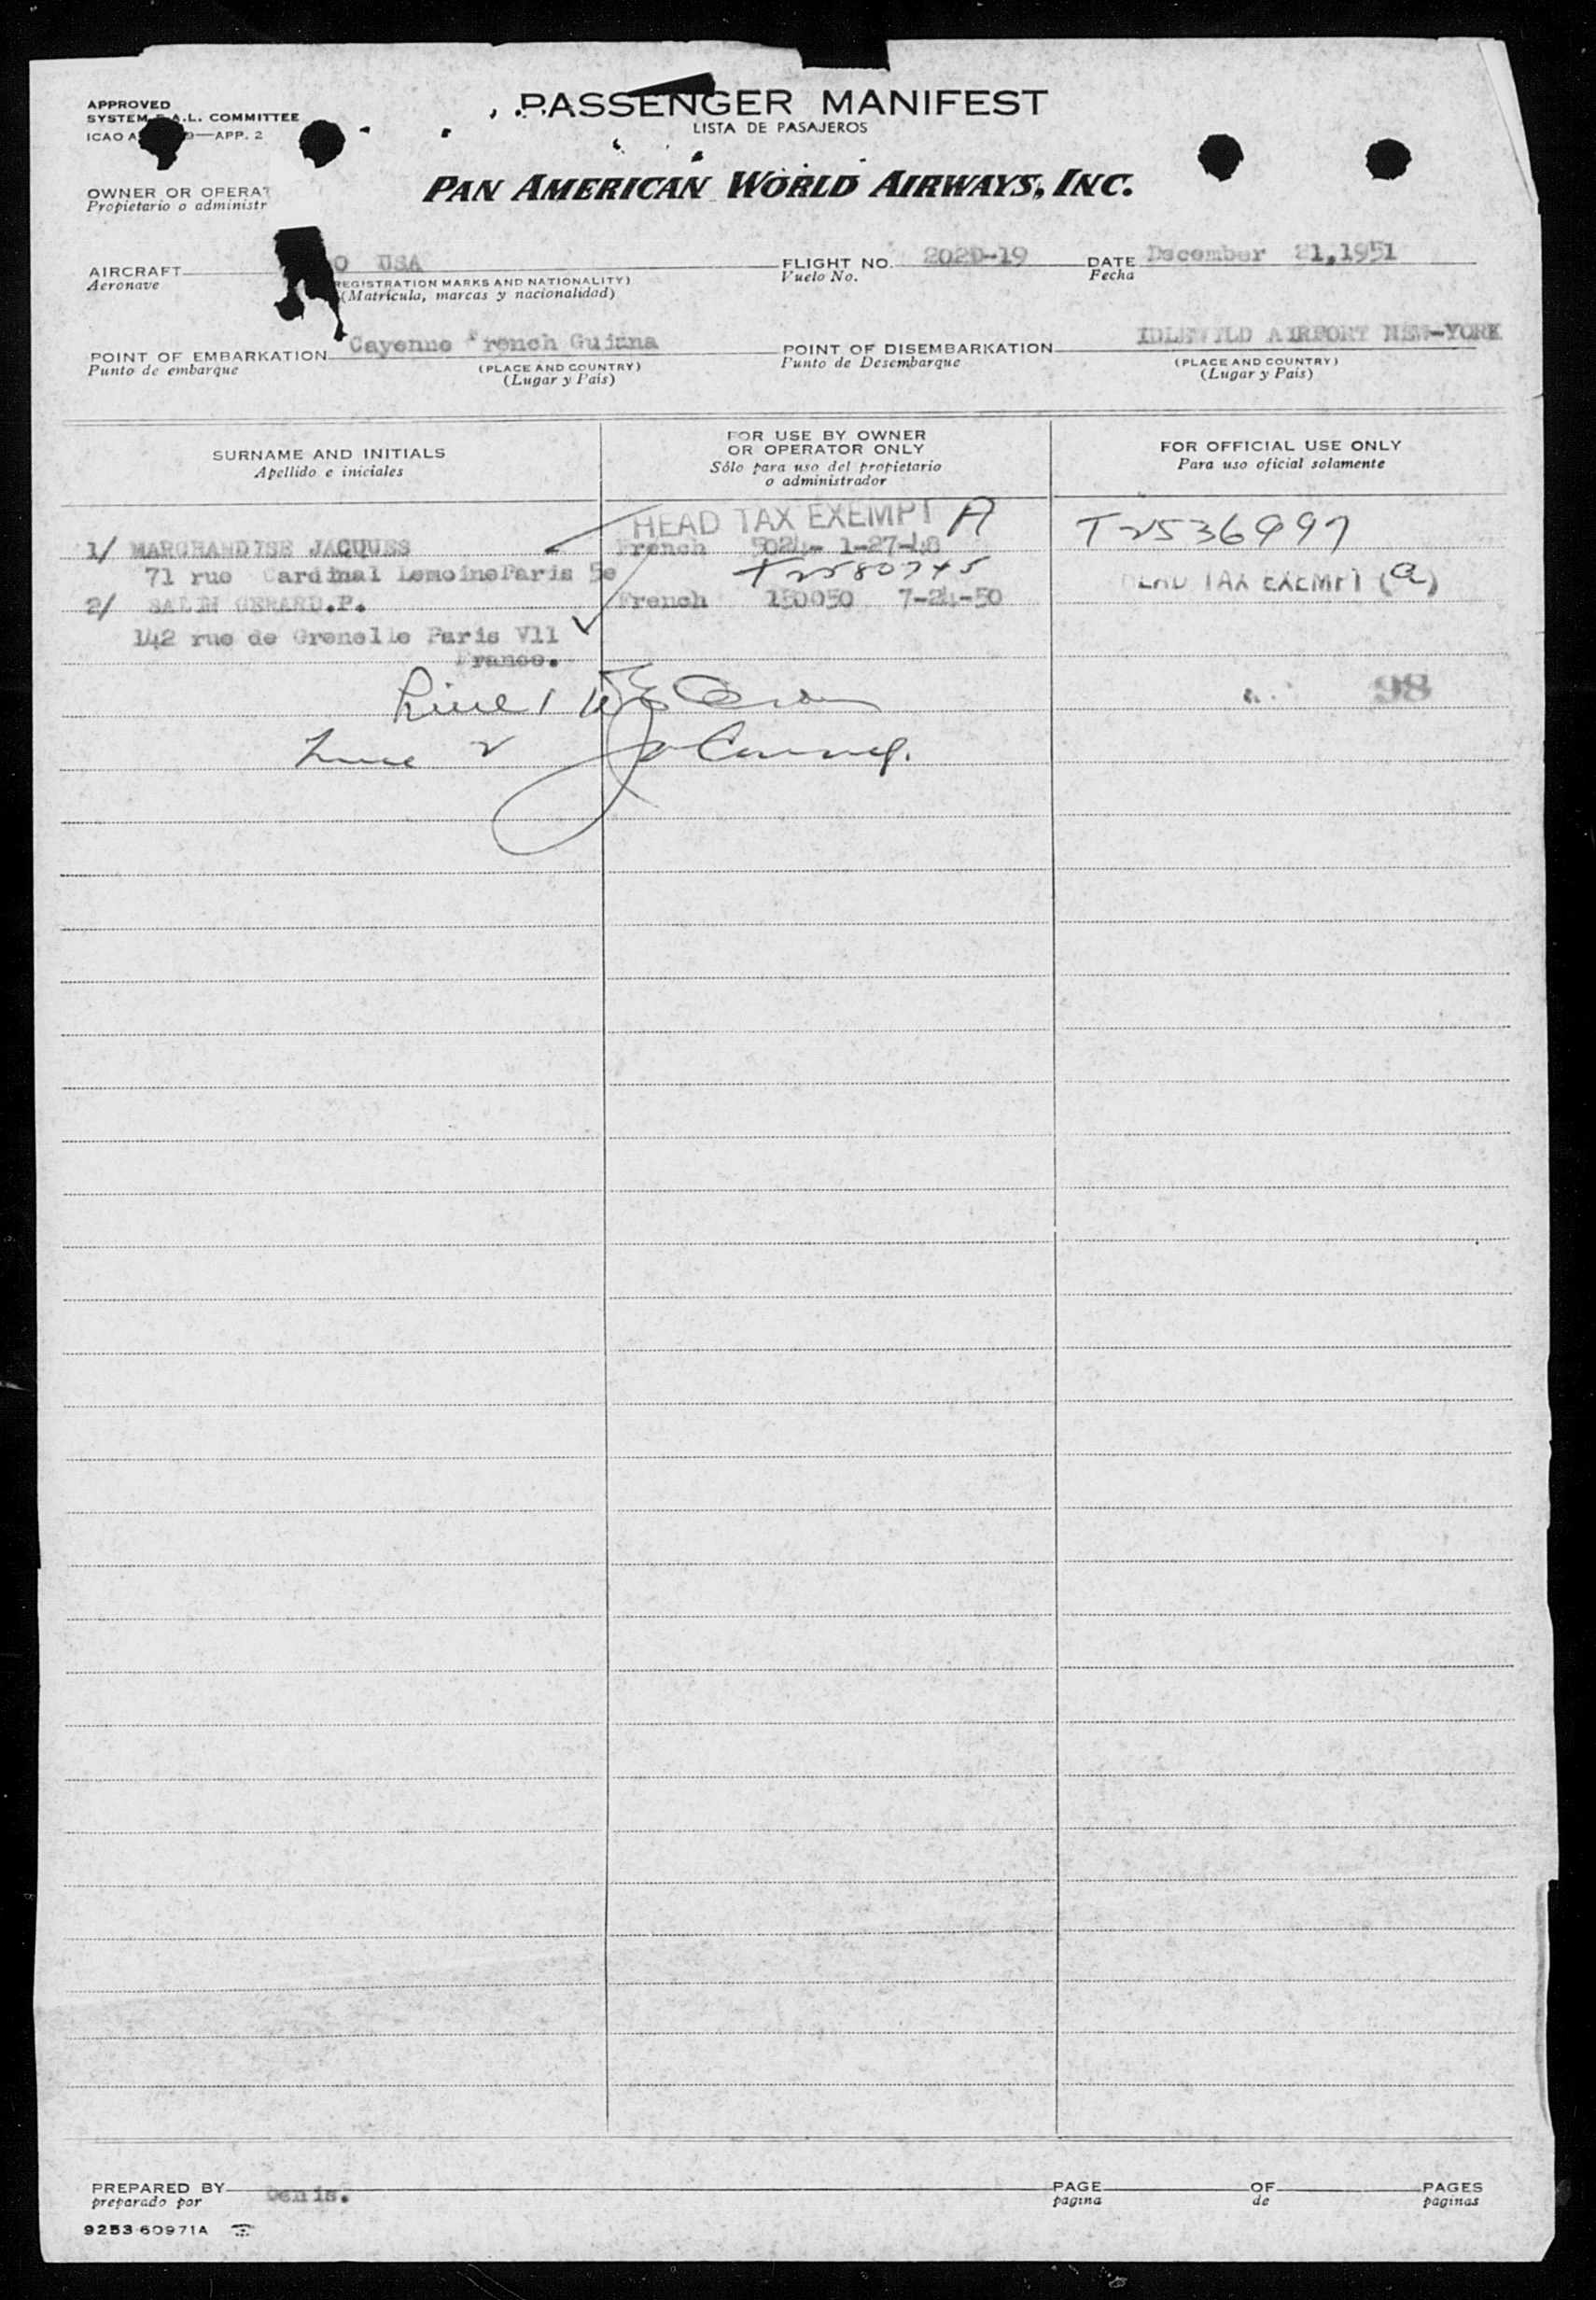 APPROVED
PASSENGER MANIFEST
SYSTEM A.L. COMMITTEE
LISTA DE PASAJEROS
ICAO —APP. 2
PAN AMERICAN WORLD AIRWAYS, INC.
OWNER OR OPERAT
Propietario o administr
AIRCRAFT O USA FLIGHT NO. 202D-19 DATE December 21,1951
Aeronave (REGISTRATION MARKS AND NATIONALITY) Vuelo No. Fecha
(Matrícula, marcas y nacionalidad)
POINT OF EMBARKATION Cayenne French Guiana POINT OF DISEMBARKATION IDLEWILD AIRPORT NEW-YORK
Punto de embarque (PLACE AND COUNTRY) Punto de Desembarque (PLACE AND COUNTRY)
(Lugar y País) (Lugar y Pais)
SURNAME AND INITIALS
Apellido e iniciales
FOR USE BY OWNER
OR OPERATOR ONLY
Sólo para uso del propietario
o administrador
FOR OFFICIAL USE ONLY
Para uso oficial solamente
HEAD TAX EXEMPT A
1/ MARCHANDISE JACQUES French 5024- 1-27-48 T2536997
71 rue Cardinal LemoineParis 5e T2580745 HEAD TAX EXEMPT (a)
2/ SALIN GERARD.P. French 150050 7-24-50
142 rue de Grenelle Paris V11
France.
Line 1
98
Line 2
PREPARED BY Denis. PAGE OF PAGES
preparado por pagina de paginas
9253 60971A